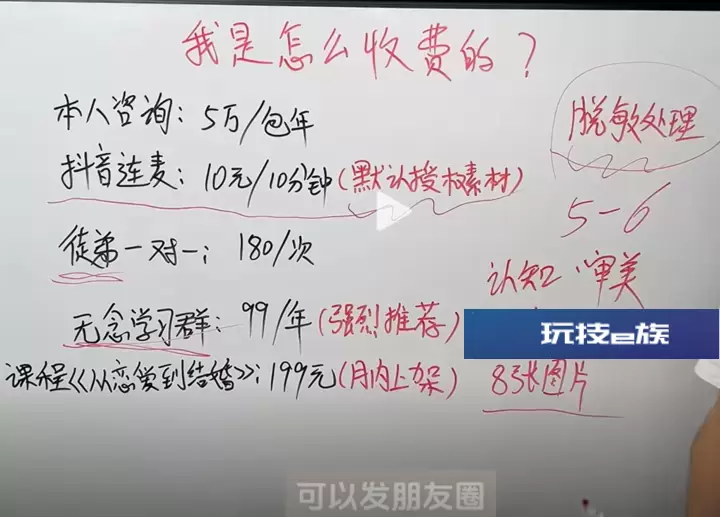 我是怎么收费的？
本人咨询：5万/包年
抖音连麦：10元/10分钟(默认授权素材)
徒弟一对一：180/次
无念学习群：99/年(强烈推荐)
课程《从恋爱到结婚》：199元(月内上架)
脱敏处理
5-6
认知·审美
玩技e族
8张图片
可以发朋友圈